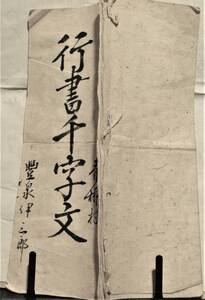 行書千字文
豐泉伊三郎